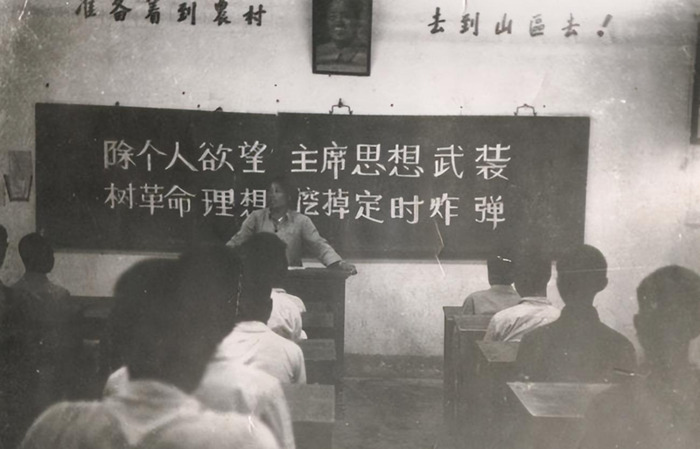 准备着到农村 去到山區去！
除个人欲望 主席思想武装
树革命理想 挖掉定时炸弹